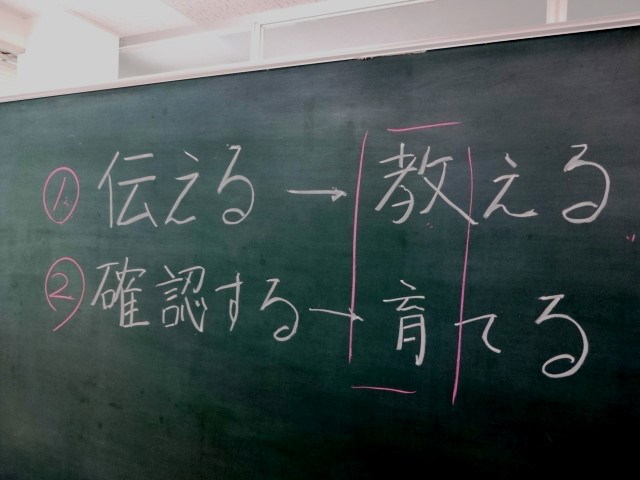 ① 伝える → 教える
② 確認する → 育てる